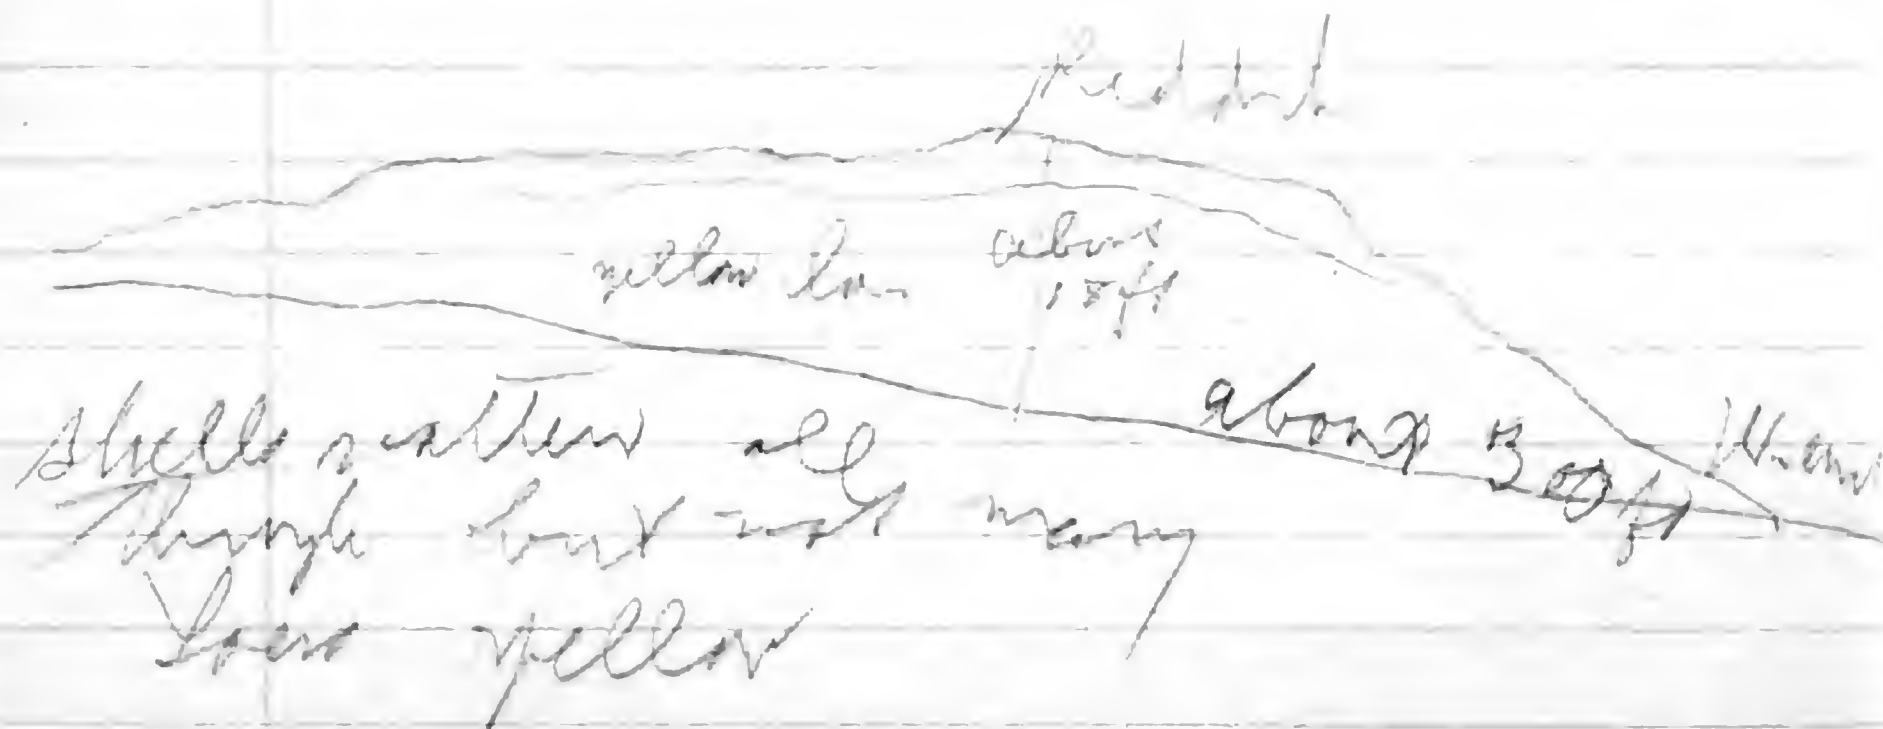 yellow lo
about
15 ft
about 30 ft
shells scattered all
through but not many
Loess yellow